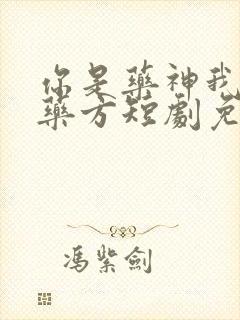 你是藥神我
藥方短劇免
馮紫劍